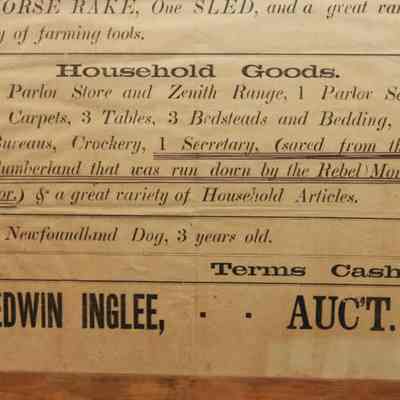 ORSE RAKE, One SLED, and a great var
y of farming tools.
Household Goods.
Parlor Store and Zenith Range, 1 Parlor Se
Carpets, 3 Tables, 3 Bedsteads and Bedding,
Bureaus, Crockery, 1 Secretary, (saved from th
umberland that was run down by the Rebel Mon
or.) & a great variety of Household Articles.
Newfoundland Dog, 3 years old.
Terms Cash
EDWIN INGLEE, · · AUC'T.